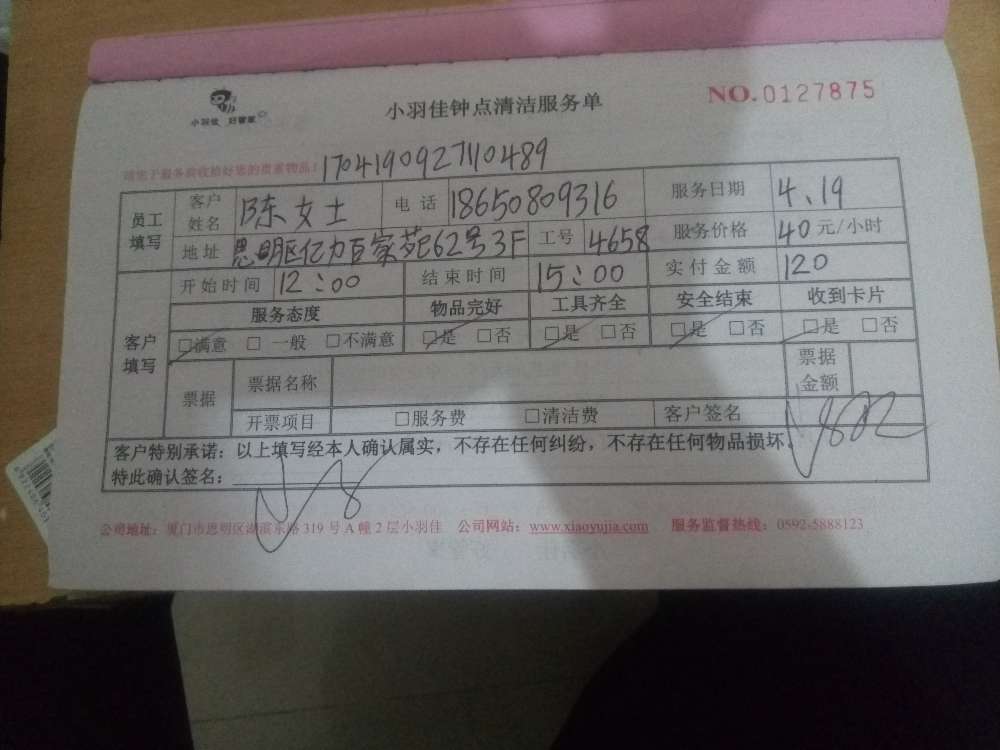 小羽佳 好管家
小羽佳钟点清洁服务单
NO.0127875
请您于服务前收拾好您的贵重物品!
1704190927110489
员工填写 客户姓名 陈女士 电话 18650809316 服务日期 4.19
地址 思明区亿力百家苑62号3F 工号 4658 服务价格 40元/小时
客户填写 开始时间 12:00 结束时间 15:00 实付金额 120
服务态度 物品完好 工具齐全 安全结束 收到卡片
☑满意 □一般 □不满意 ☑是 □否 ☑是 □否 ☑是 □否 ☑是 □否
票据 票据名称 票据金额
开票项目 □服务费 □清洁费 客户签名
客户特别承诺:以上填写经本人确认属实,不存在任何纠纷,不存在任何物品损坏。
特此确认签名:
公司地址:厦门市思明区湖滨东路319号A幢2层小羽佳 公司网站:www.xiaoyujia.com 服务监督热线:0592-5888123